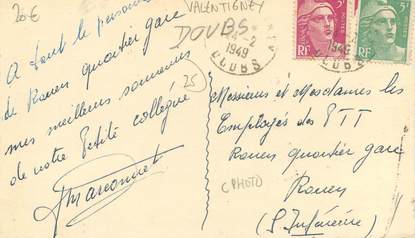 20€
VALENTIGNEY
DOUBS
24-2
1949
DOUBS
3F
RF
5F
RF
1949
A tout le personnel
de Rouen quartier gare
mes meilleurs souvenirs
de notre Petite collègue
25
Marconnet
Messieurs et Mesdames les
Employés des PTT
Rouen quartier gare
Rouen
(S. Inférieure)
CPHOTO